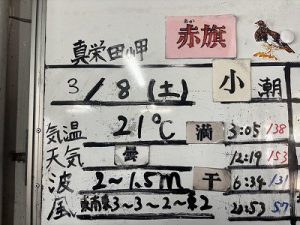 赤旗
真栄田岬
3/8(土) 小潮
気温 21℃ 満 3:05 138
天気 曇 12:19 153
波 2〜1.5m 干 6:34 131
風 3〜3〜2〜東2 20:53 57